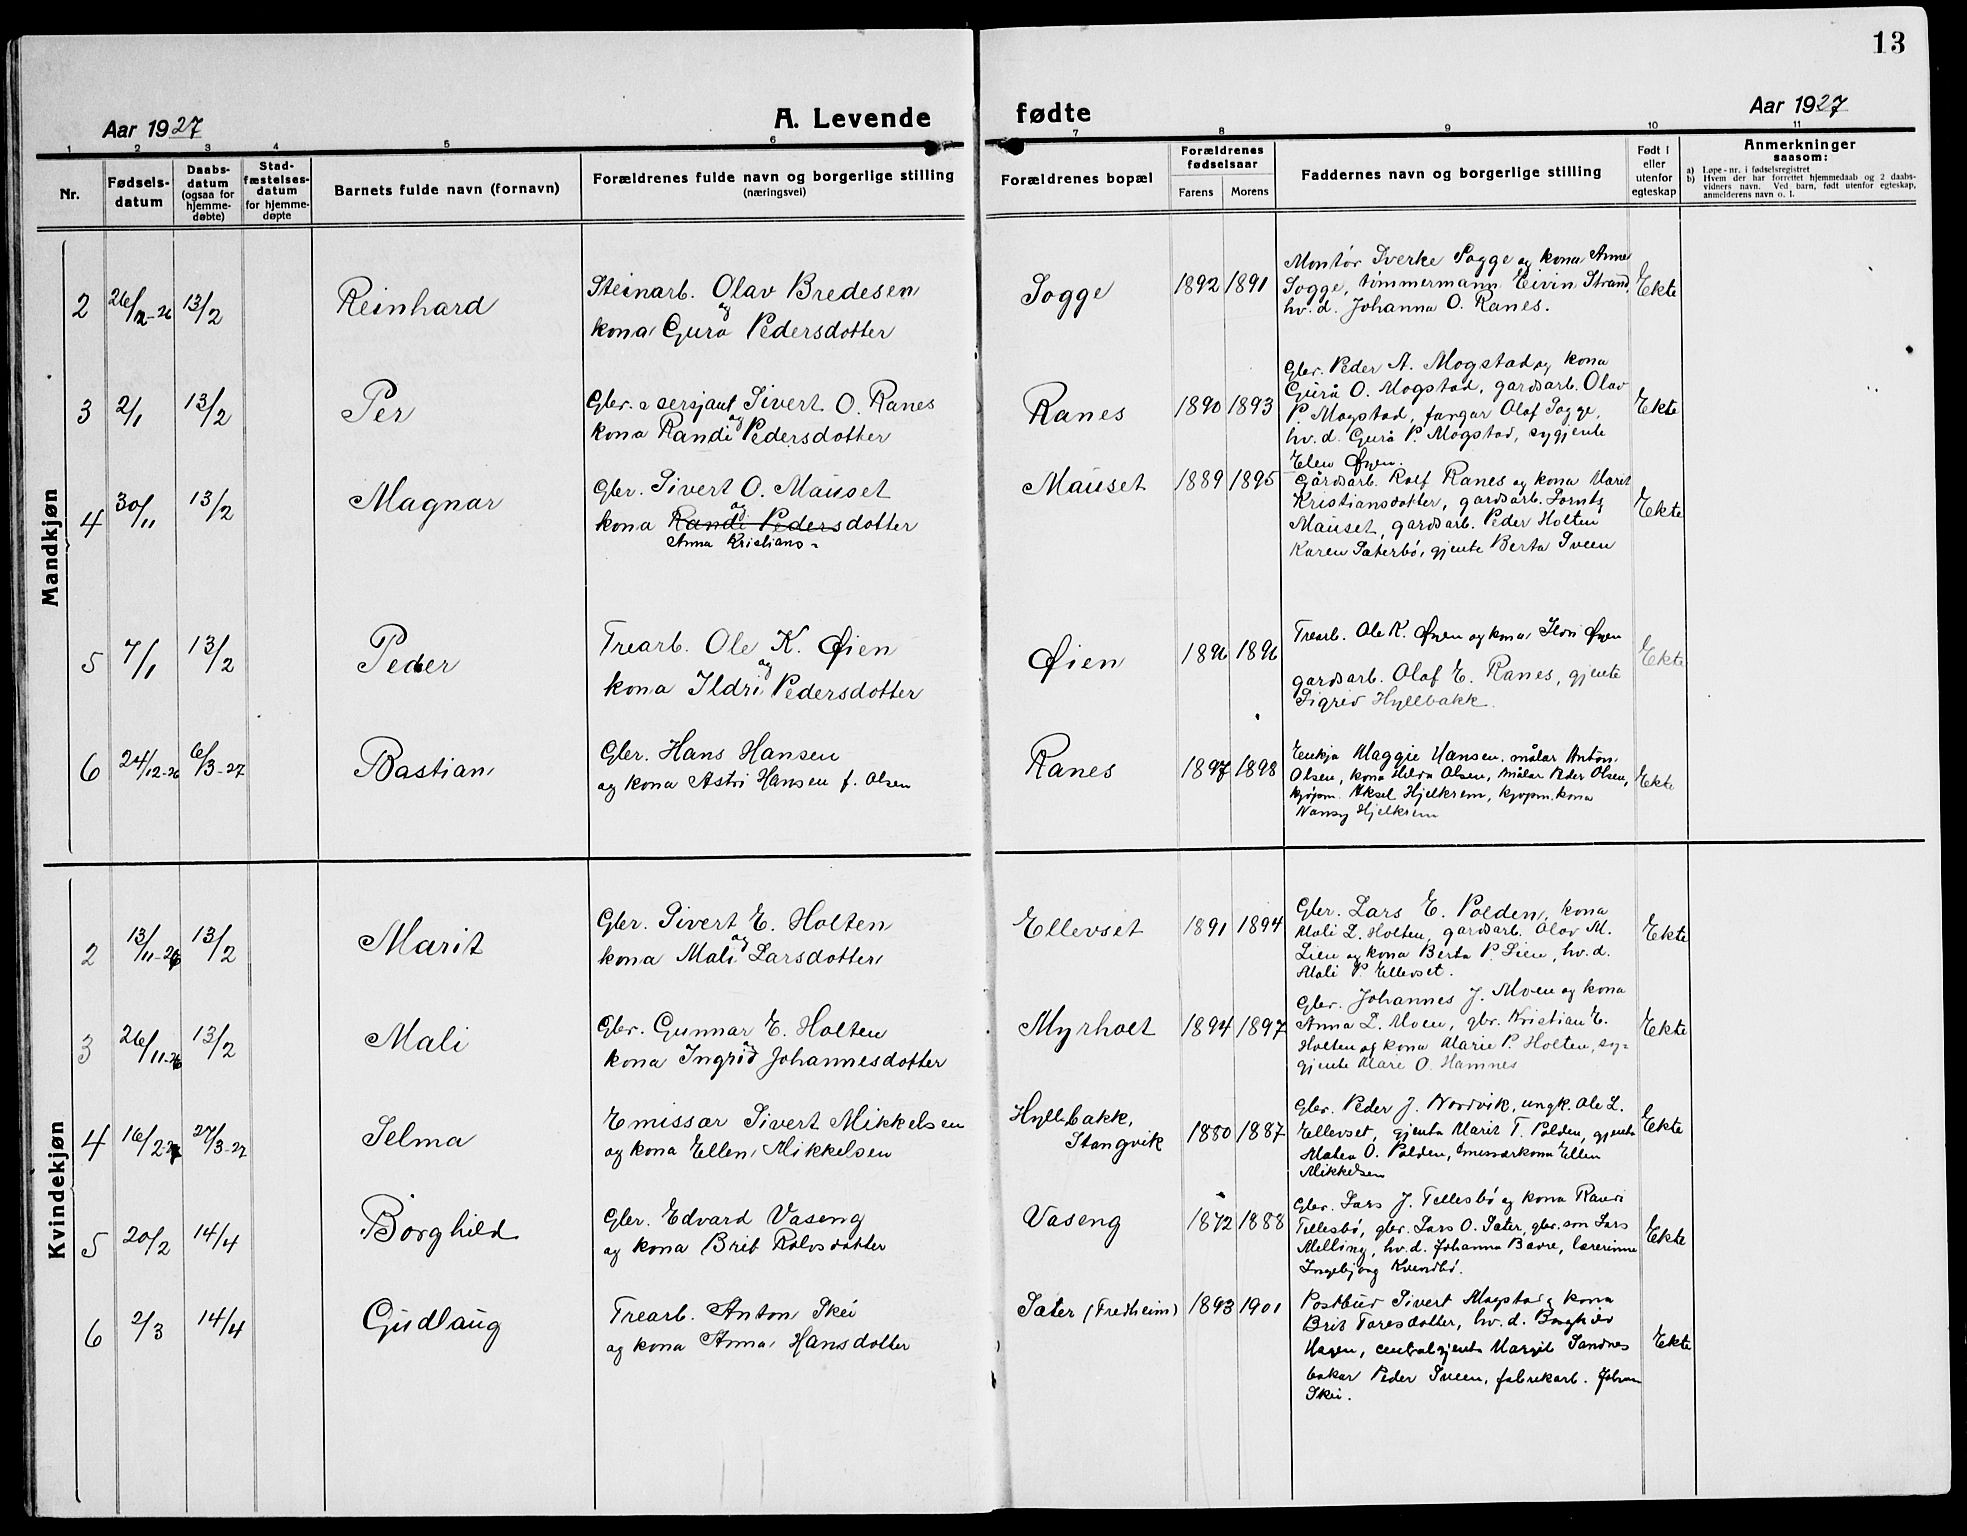 13
Aar 1927
A. Levende
fødte
Aar 1927
1 2 3 4 5 6 7 8 9 10 11
Nr.
Fødsels-
datum
Daabs-
datum
(ogsaa for
hjemme-
døbte)
Stad-
fæstelses-
datum
for hjemme-
døpte
Barnets fulde navn (fornavn)
Forældrenes fulde navn og borgerlige stilling
(næringsvei)
Forældrenes bopæl
Forældrenes
fødselsaar
Farens Morens
Faddernes navn og borgerlige stilling
Født i
eller
utenfor
egteskap
Anmerkninger
saasom:
a) Løpe-nr. i fødselsregistret
b) Hvem der har forrettet hjemmedaab og 2 daabs-
vidners navn. Ved barn, født utenfor egteskap,
anmelderens navn o. l.
Mandkjøn
2 26/12-26 13/2 Reinhard
Steinarb. Olav Bredesen
og
kona Gurå Pedersdotter
Sogge 1892 1891
Montør Sverke Sogge og kona Anne
Sogge, tømmermann Eivin Strand,
hv.d. Johanna O. Ranes.
Ekte
3 2/1 13/2 Per
Gbr. o sersjant Sivert O. Ranes
og
kona Randi Pedersdotter
Ranes 1890 1893
Gbr. Peder A. Mogstad og kona
Gurå O. Mogstad, gardsarb. Olav
P. Mogstad, fangar Olaf Sogge,
hv.d. Gurå P. Mogstad, sygjente
Elen Øyen.
Ekte
4 30/11 13/2 Magnar
Gbr. Sivert O. Mauset
og
kona Randi Pedersdotter
Anna Kristians-
Mauset 1889 1895
Gårdsarb. Rolf Ranes og kona Marit
Kristiansdotter, gardsarb.
Mauset, gardsarb. Peder Holten
Karen Sæterbø, gjente Berta Sveen
Ekte
5 7/1 13/2 Peder
Trearb. Ole K. Øien
og
kona Ildri Pedersdotter
Øien 1896 1896
Trearb. Ole K. Øyen og kona Ildri Øyen
gardsarb. Olaf E. Ranes, gjente
Sigrid Hyllbakk.
Ekte
6 24/12-26 6/3-27 Bastian
Gbr. Hans Hansen
og kona Astri Hansen f. Olsen
Ranes 1897 1898
Enkja Maggie Hansen, målar Anton
Olsen, kona Hilda Olsen, målar Peder Olsen,
kjøpm. Aksel Hjelkrem, kjøpm.kona
Nansy Hjelkrem
Ekte
Kvindekjøn
2 13/11-26 13/2 Marit
Gbr. Sivert E. Holten
og
kona Mali Larsdotter
Ellevset 1891 1894
Gbr. Lars E. Polden, kona
Mali L. Holten, gardsarb. Olav M.
Lien og kona Berta P. Lien, hv.d.
Mali P. Ellevset.
Ekte
3 26/11-26 13/2 Mali
Gbr. Gunnar E. Holten
og
kona Ingrid Johannesdotter
Myrholt 1894 1897
Gbr. Johannes J. Moen og kona
Anna L. Moen, gbr. Kristian E.
Holten og kona Marie P. Holten, sy-
gjente Mari O. Hamnes
Ekte
4 16/2-27 27/3-27 Selma
Emissær Sivert Mikkelsen
og kona Ellen Mikkelsen
Hyllbakk,
Stangvik
1880 1887
Gbr. Peder J. Nordvik, ungk. Ole L.
Ellevset, gjenta Marit T. Polden, gjenta
Malen O. Polden, emissærkona Ellen
Mikkelsen
Ekte
5 20/2 14/4 Borghild
Gbr. Edvard Vaseng
og kona Brit Rolvsdotter
Vaseng 1872 1888
Gbr. Lars J. Tellesbø og kona Randi
Tellesbø, gbr. Lars O. Sæter, gbr.son Lars
Melling, hv.d. Johanna Bævre, lærerinne
Ingebjørg Kvendbø.
Ekte
6 2/3 14/4 Gudlaug
Trearb. Anton Skei
og kona Anna Hansdotter
Sæter (Fredheim) 1893 1901
Postbud Sivert Mogstad og kona
Brit Toresdotter, hv.d. Borghild
Hagen, centralgjenta Margit Sandnes
bakar Peder Sveen, fabrekarb. Johan
Skei.
Ekte